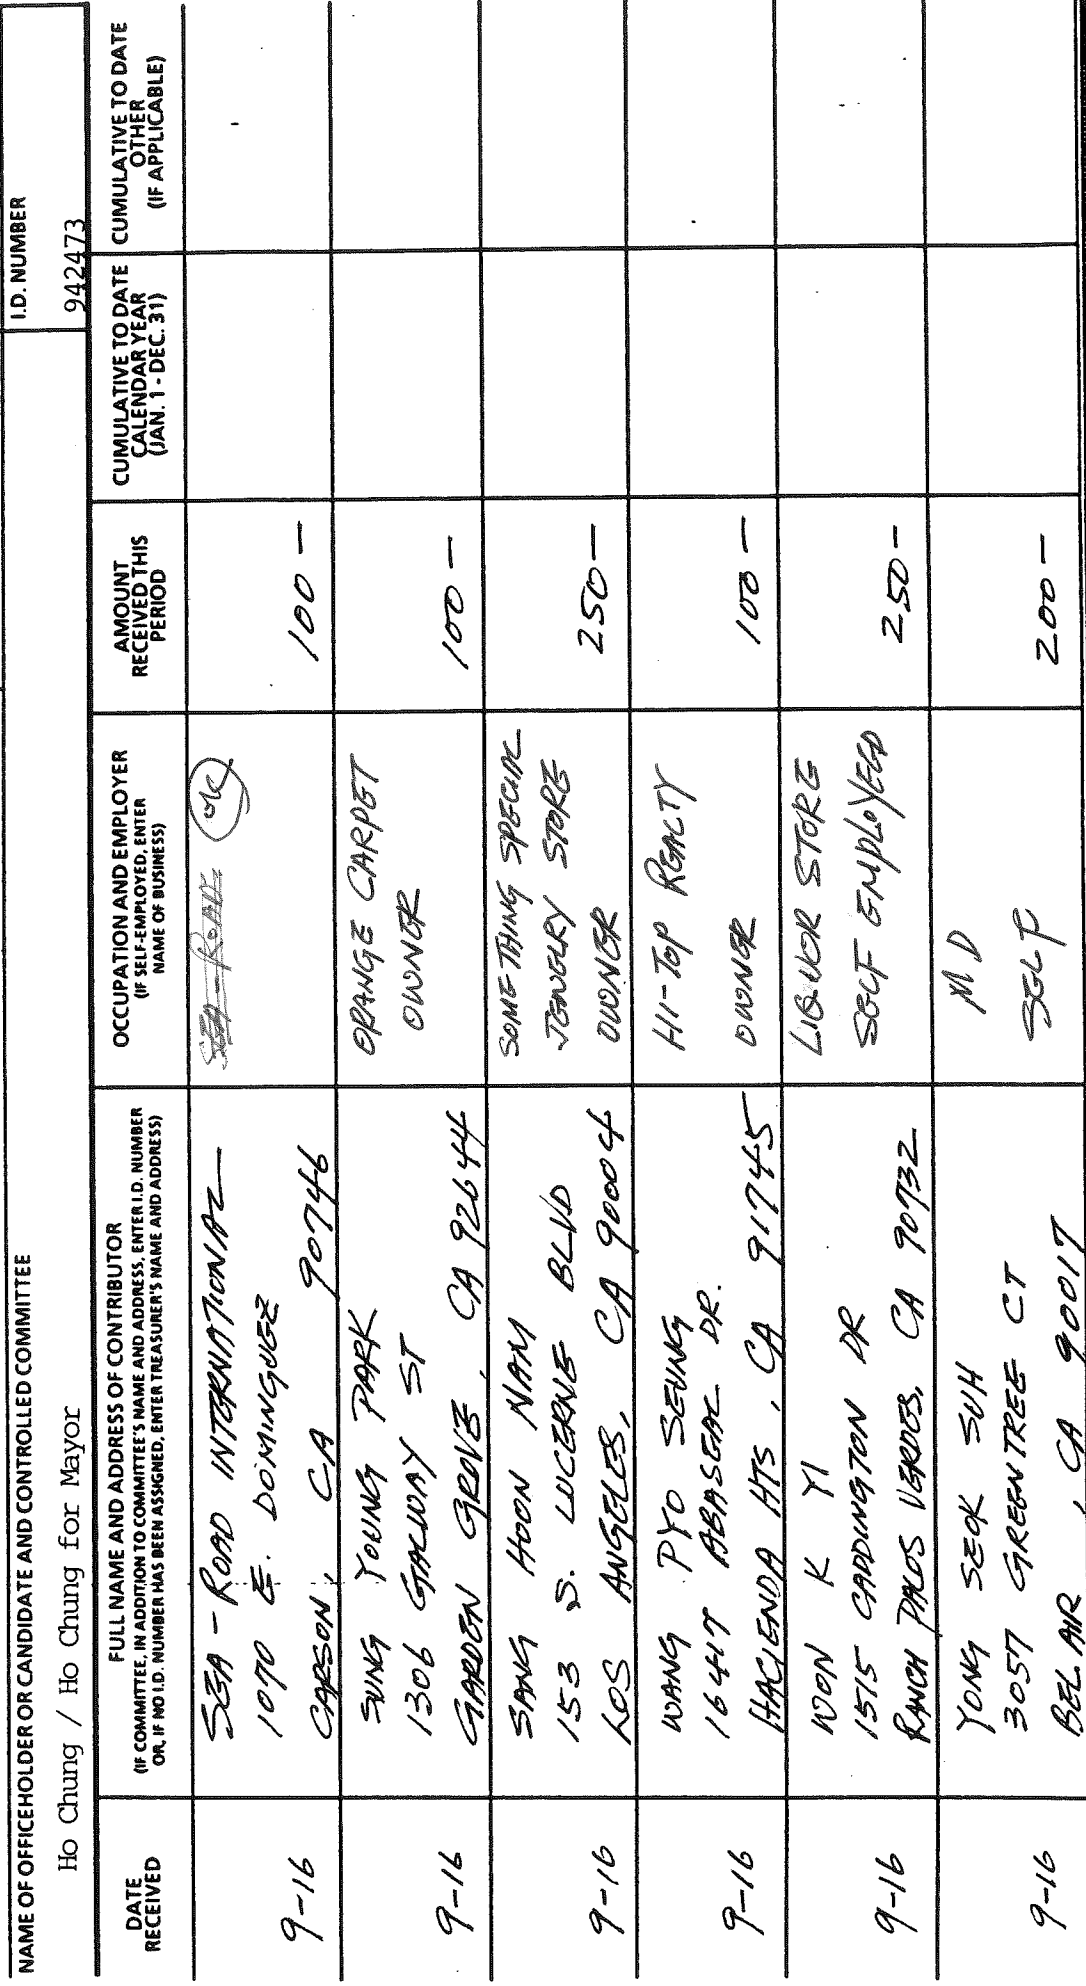 NAME OF OFFICEHOLDER OR CANDIDATE AND CONTROLLED COMMITTEE
Ho Chung / Ho Chung for Mayor
I.D. NUMBER
942473
DATE
RECEIVED
FULL NAME AND ADDRESS OF CONTRIBUTOR
(IF COMMITTEE, IN ADDITION TO COMMITTEE'S NAME AND ADDRESS, ENTER I.D. NUMBER
OR, IF NO I.D. NUMBER HAS BEEN ASSIGNED, ENTER TREASURER'S NAME AND ADDRESS)
OCCUPATION AND EMPLOYER
(IF SELF-EMPLOYED, ENTER
NAME OF BUSINESS)
AMOUNT
RECEIVED THIS
PERIOD
CUMULATIVE TO DATE
CALENDAR YEAR
(JAN. 1 - DEC. 31)
CUMULATIVE TO DATE
OTHER
(IF APPLICABLE)
9-16
SEA-ROAD INTERNATIONAL
1070 E. DOMINGUEZ
CARSON, CA 90746
SEA-ROAD
ok
100-
9-16
SUNG YOUNG PARK
1306 GALWAY ST
GARDEN GROVE, CA 92644
ORANGE CARPET
OWNER
100-
9-16
SANG HOON NAM
153 S. LUCERNE BLVD
LOS ANGELES, CA 90004
SOMETHING SPECIAL
JEWELRY STORE
OWNER
250-
9-16
WANG PYO SEUNG
16417 ABASEAL DR.
HACIENDA HTS, CA 91745
HI-TOP REALTY
OWNER
100-
9-16
WON K YI
1515 CADDINGTON DR
RANCH PALOS VERDES, CA 90732
LIQUOR STORE
SELF EMPLOYEED
250-
9-16
YONG SEOK SUH
3057 GREENTREE CT
BEL AIR, CA 90017
MD
SELF
200-